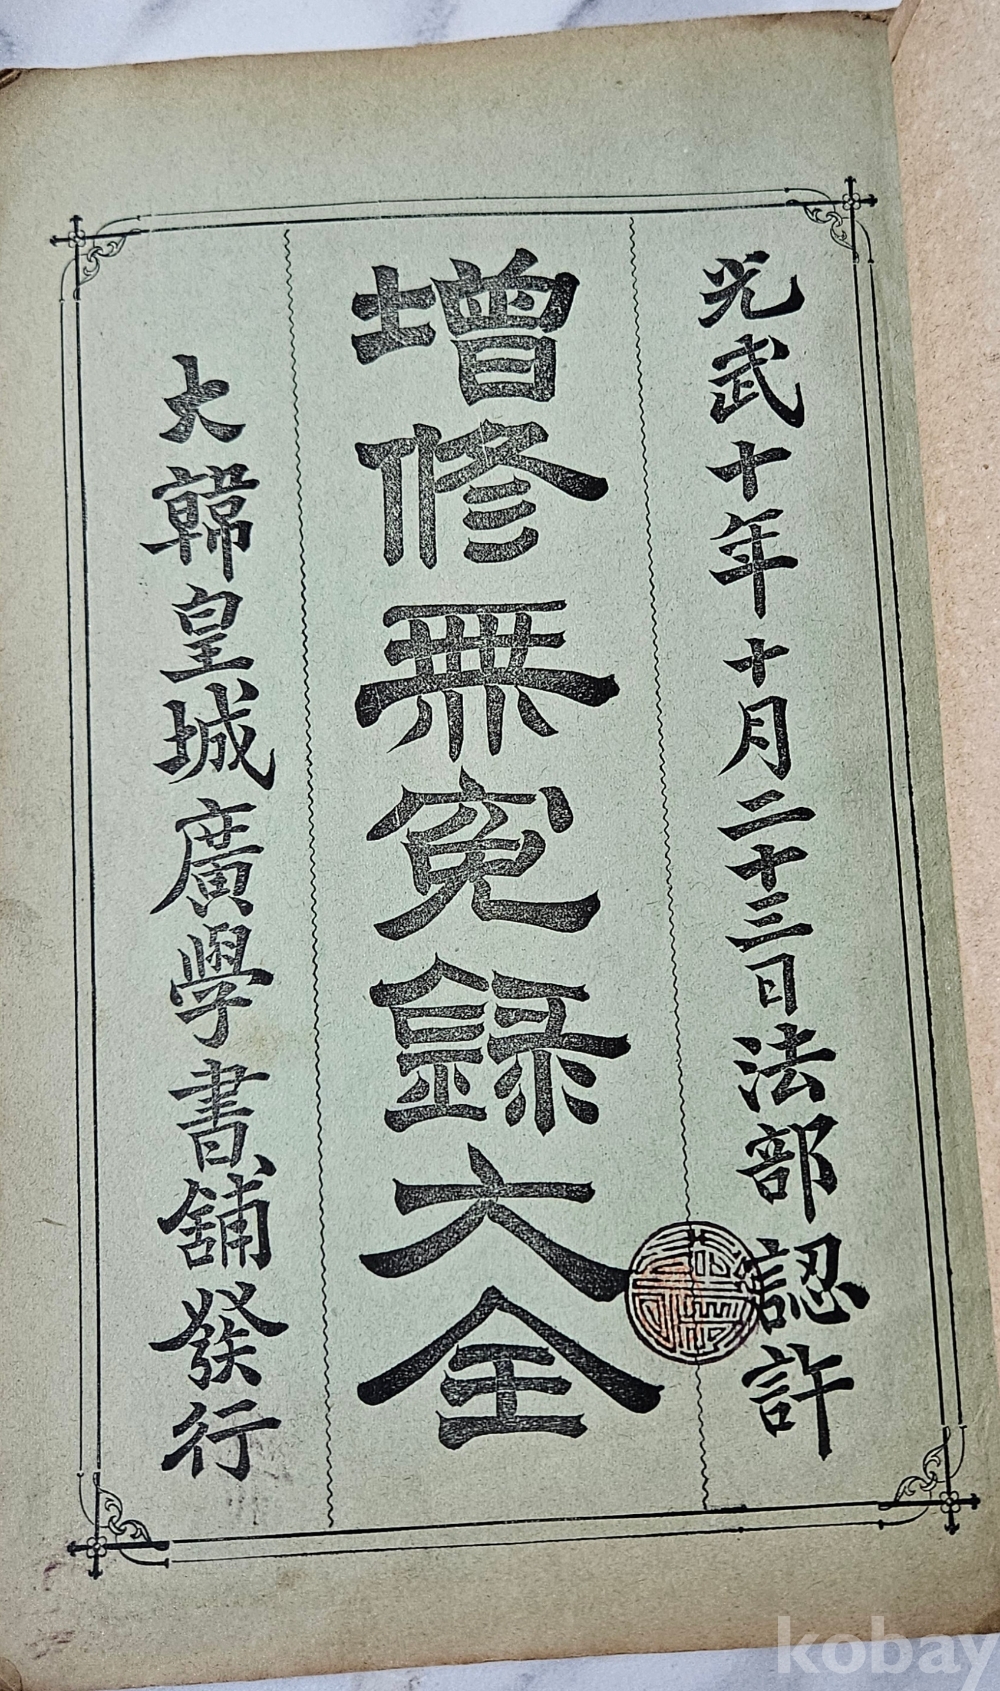 光武十年十月二十三日法部認許
增修無冤錄大全
大韓皇城廣學書舖發行
kobay